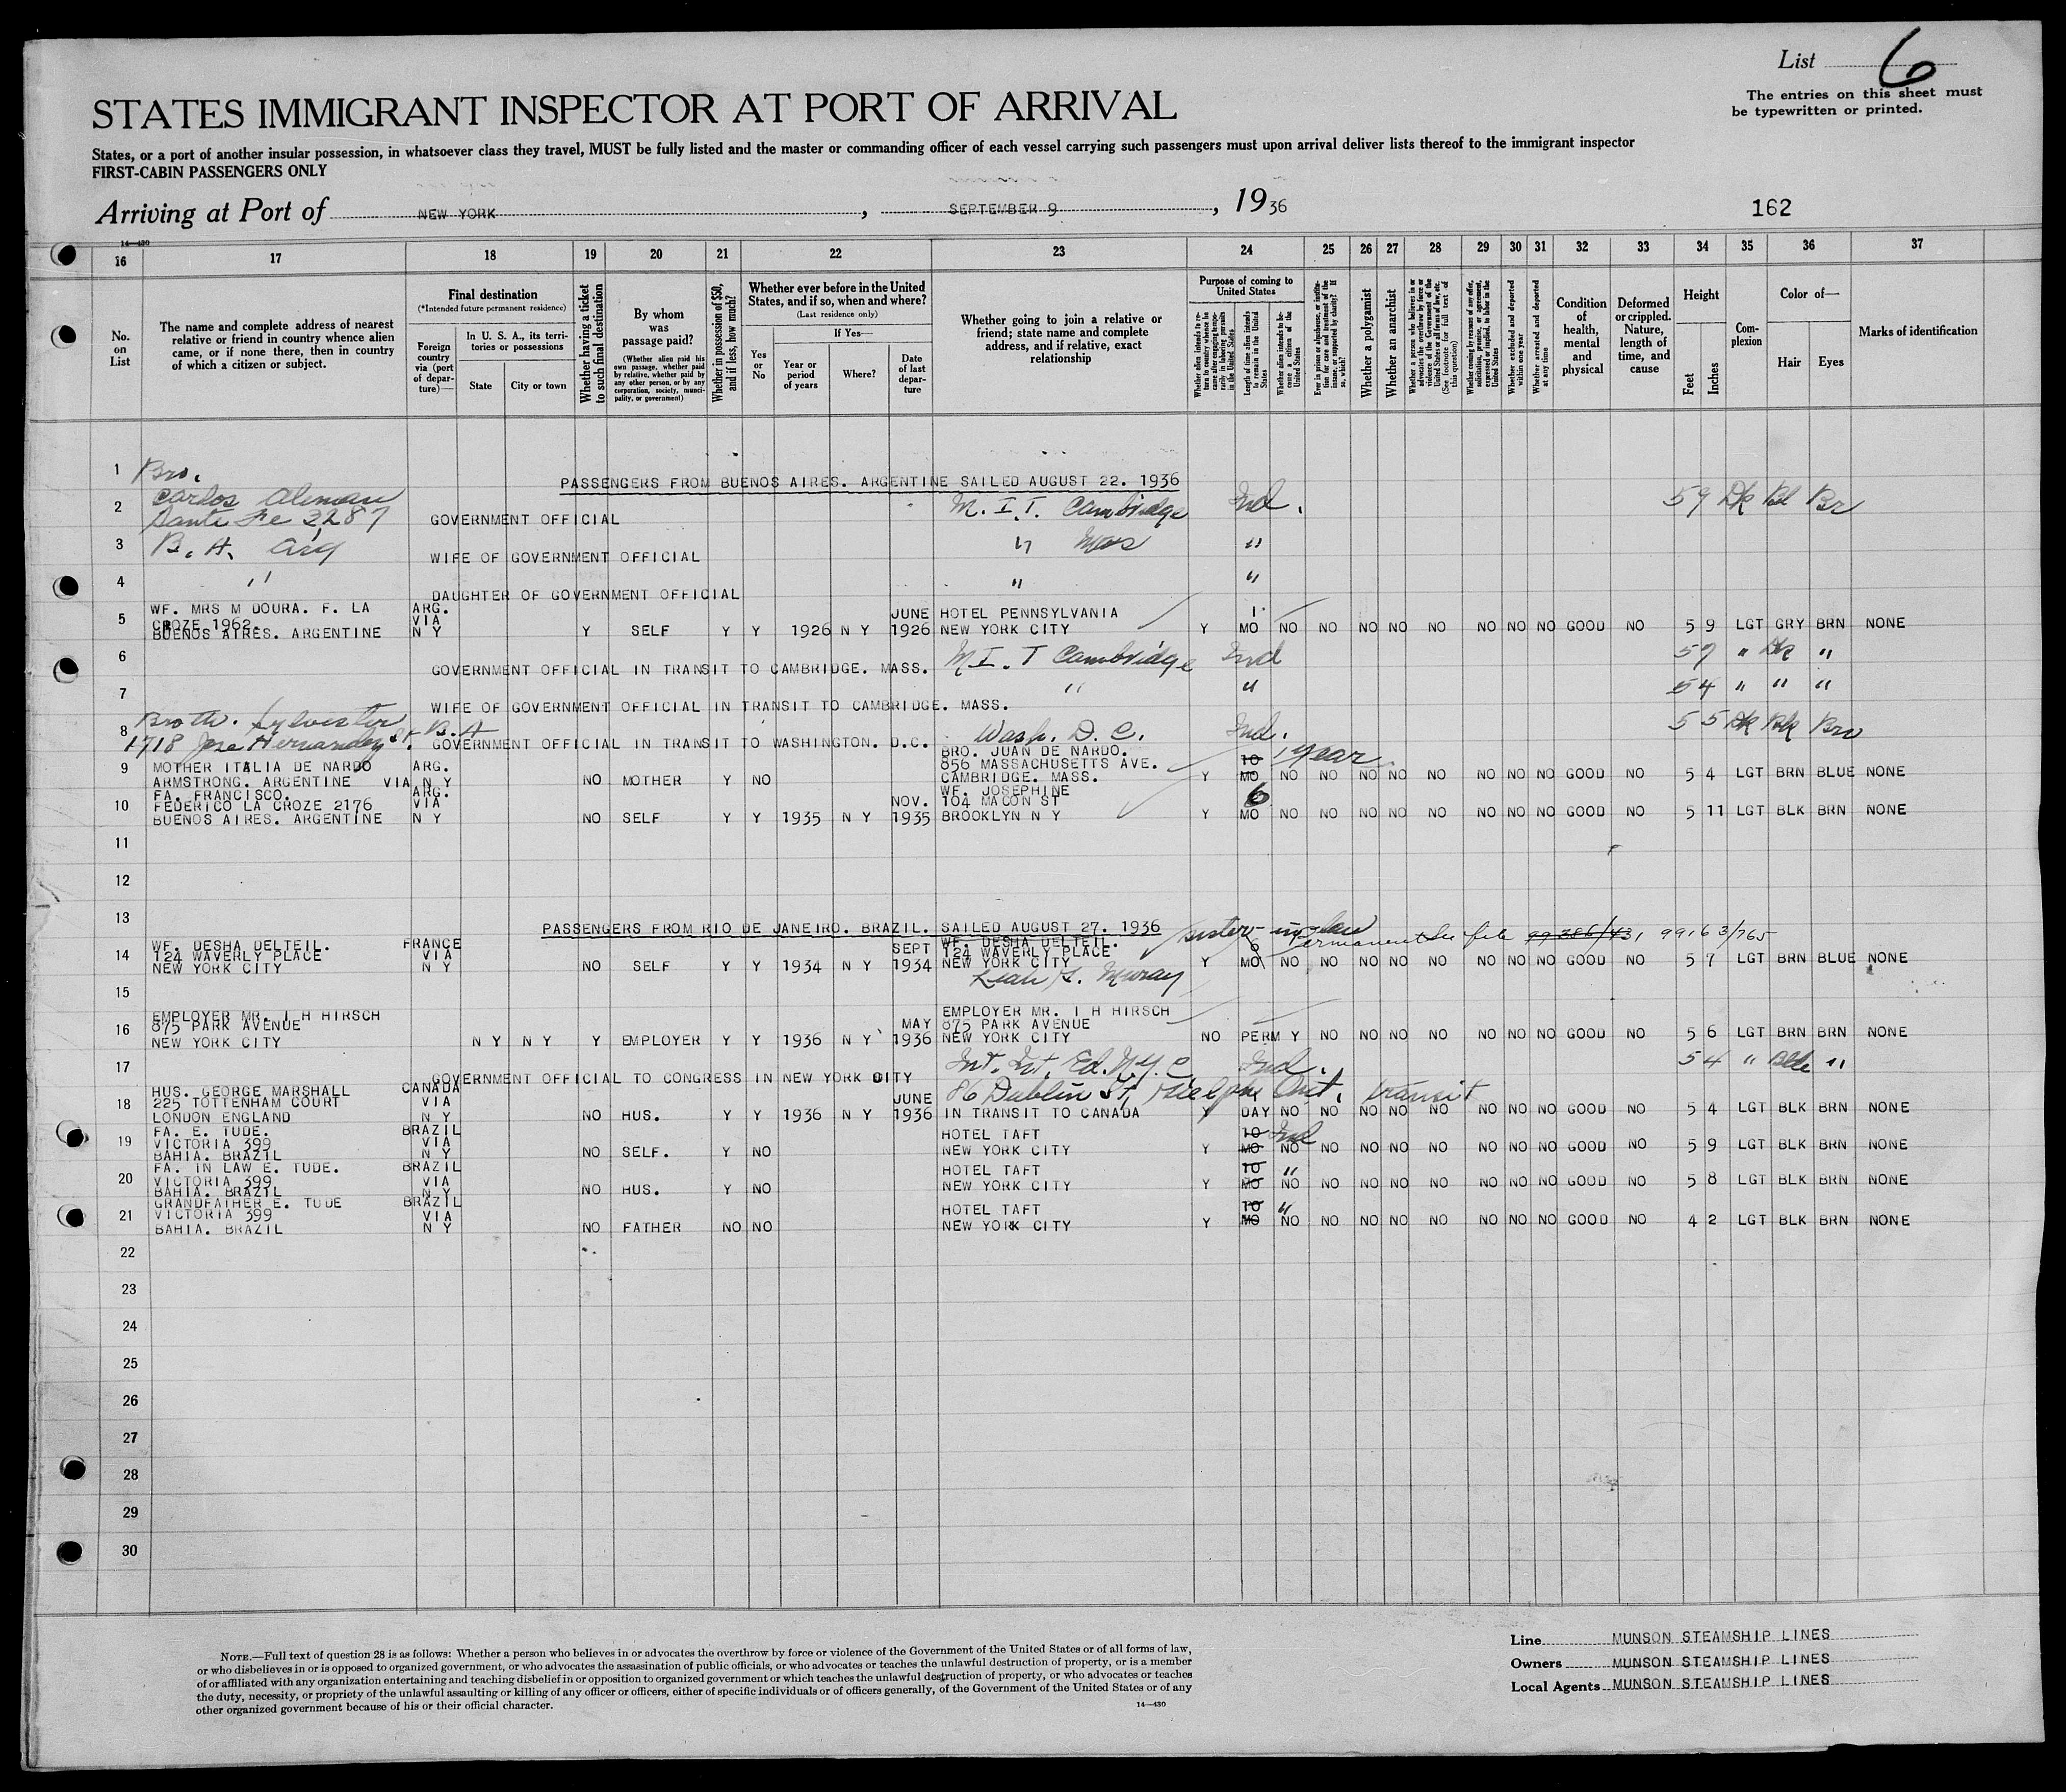 List 6
The entries on this sheet must
be typewritten or printed.
STATES IMMIGRANT INSPECTOR AT PORT OF ARRIVAL
States, or a port of another insular possession, in whatsoever class they travel, MUST be fully listed and the master or commanding officer of each vessel carrying such passengers must upon arrival deliver lists thereof to the immigrant inspector
FIRST-CABIN PASSENGERS ONLY
Arriving at Port of NEW YORK, SEPTEMBER 9, 1936 162
14—430
16 17 18 19 20 21 22 23 24 25 26 27 28 29 30 31 32 33 34 35 36 37
No. on List
The name and complete address of nearest relative or friend in country whence alien came, or if none there, then in country of which a citizen or subject.
Final destination
(*Intended future permanent residence)
Foreign country via (port of departure)—
In U. S. A., its territories or possessions
State
City or town
Whether having a ticket to such final destination
By whom was passage paid?
(Whether alien paid his own passage, whether paid by relative, whether paid by any other person, or by any corporation, society, municipality, or government)
Whether in possession of $50, and if less, how much?
Whether ever before in the United States, and if so, when and where?
(Last residence only)
Yes or No
If Yes—
Year or period of years
Where?
Date of last departure
Whether going to join a relative or friend; state name and complete address, and if relative, exact relationship
Purpose of coming to United States
Whether alien intends to return to country whence he came after engaging temporarily in laboring pursuits in the United States
Length of time alien intends to remain in the United States
Whether alien intends to become a citizen of the United States
Ever in prison or almshouse, or institution for care and treatment of the insane, or supported by charity? If so, which?
Whether a polygamist
Whether an anarchist
Whether a person who believes in or advocates the overthrow by force or violence of the Government of the United States or all forms of law, etc. (See footnote for full text of this question)
Whether coming by reasons of any offer, solicitation, promise, or agreement, expressed or implied, to labor in the United States
Whether excluded and deported within one year
Whether arrested and deported at any time
Condition of health, mental and physical
Deformed or crippled. Nature, length of time, and cause
Height
Feet
Inches
Complexion
Color of—
Hair
Eyes
Marks of identification
1 Bro.
PASSENGERS FROM BUENOS AIRES. ARGENTINE SAILED AUGUST 22. 1936
2 Carlos Aleman
Sante Fe 3287 GOVERNMENT OFFICIAL M. I. T. Cambridge Ind. 5 9 Dk Bl Br
3 B. A. Arg WIFE OF GOVERNMENT OFFICIAL " Mas "
4 " DAUGHTER OF GOVERNMENT OFFICIAL " "
5 WF. MRS M DOURA. F. LA ARG. JUNE HOTEL PENNSYLVANIA 1.
CROZE 1962. VIA
BUENOS AIRES. ARGENTINE N Y Y SELF Y Y 1926 N Y 1926 NEW YORK CITY Y MO NO NO NO NO NO NO NO NO GOOD NO 5 9 LGT GRY BRN NONE
6 GOVERNMENT OFFICIAL IN TRANSIT TO CAMBRIDGE. MASS. M I. T Cambridge Ind 5 7 " Dk "
7 WIFE OF GOVERNMENT OFFICIAL IN TRANSIT TO CAMBRIDGE. MASS. " " 5 4 " " "
8 Broth. Sylvester B. A
1718 Jose Hernandez St. GOVERNMENT OFFICIAL IN TRANSIT TO WASHINGTON. D.C. Wash. D. C. Ind. 5 5 Dk Bk Bro
9 MOTHER ITALIA DE NARDO ARG. BRO. JUAN DE NARDO. 856 MASSACHUSETTS AVE. 10 1 year
ARMSTRONG. ARGENTINE VIA N Y NO MOTHER Y NO CAMBRIDGE. MASS. Y MO NO NO NO NO NO NO NO NO GOOD NO 5 4 LGT BRN BLUE NONE
10 FA. FRANCISCO. ARG. WF. JOSEPHINE 6
FEDERICO LA CROZE 2176 VIA NOV. 104 MACON ST
BUENOS AIRES. ARGENTINE N Y NO SELF Y Y 1935 N Y 1935 BROOKLYN N Y Y MO NO NO NO NO NO NO NO NO GOOD NO 5 11 LGT BLK BRN NONE
11
12
13 PASSENGERS FROM RIO DE JANEIRO. BRAZIL. SAILED AUGUST 27. 1936 sister-in-law
Permanent See file 99286/431 99163/765
14 WF. DESHA DELTEIL. FRANCE SEPT WF. DESHA DELTEIL.
124 WAVERLY PLACE VIA 124 WAVERLY PLACE 6
NEW YORK CITY N Y NO SELF Y Y 1934 N Y 1934 NEW YORK CITY Y MO NO NO NO NO NO NO NO NO GOOD NO 5 7 LGT BRN BLUE NONE
Leah S. Murray
15
16 EMPLOYER MR. I H HIRSCH EMPLOYER MR. I H HIRSCH
875 PARK AVENUE MAY 875 PARK AVENUE
NEW YORK CITY N Y N Y Y EMPLOYER Y Y 1936 N Y 1936 NEW YORK CITY NO PERM Y NO NO NO NO NO NO NO GOOD NO 5 6 LGT BRN BRN NONE
17 GOVERNMENT OFFICIAL TO CONGRESS IN NEW YORK CITY Int. Ed. N.Y.C Ind. 5 4 " "
18 HUS. GEORGE MARSHALL CANADA 86 Dublin St, Ont. transit
225 TOTTENHAM COURT VIA JUNE
LONDON ENGLAND N Y NO HUS. Y Y 1936 N Y 1936 IN TRANSIT TO CANADA Y DAY NO NO NO NO NO NO NO NO GOOD NO 5 4 LGT BLK BRN NONE
19 FA. E. TUDE. BRAZIL HOTEL TAFT 10 Ind
VICTORIA 399 VIA
BAHIA. BRAZIL N Y NO SELF. Y NO NEW YORK CITY Y MO NO NO NO NO NO NO NO NO GOOD NO 5 9 LGT BLK BRN NONE
20 FA. IN LAW E. TUDE. BRAZIL HOTEL TAFT 10 "
VICTORIA 399 VIA
BAHIA. BRAZIL N Y NO HUS. Y NO NEW YORK CITY Y MO NO NO NO NO NO NO NO NO GOOD NO 5 8 LGT BLK BRN NONE
21 GRANDFATHER E. TUDE BRAZIL HOTEL TAFT 10 "
VICTORIA 399 VIA
BAHIA. BRAZIL N Y NO FATHER NO NO NEW YORK CITY Y MO NO NO NO NO NO NO NO NO GOOD NO 4 2 LGT BLK BRN NONE
22
23
24
25
26
27
28
29
30
NOTE.—Full text of question 28 is as follows: Whether a person who believes in or advocates the overthrow by force or violence of the Government of the United States or of all forms of law,
or who disbelieves in or is opposed to organized government, or who advocates the assassination of public officials, or who advocates or teaches the unlawful destruction of property, or is a member
of or affiliated with any organization entertaining and teaching disbelief in or opposition to organized government or which teaches the unlawful destruction of property, or who advocates or teaches
the duty, necessity, or propriety of the unlawful assaulting or killing of any officer or officers, either of specific individuals or of officers generally, of the Government of the United States or of any
other organized government because of his or their official character.
14—430
Line MUNSON STEAMSHIP LINES
Owners MUNSON STEAMSHIP LINES
Local Agents MUNSON STEAMSHIP LINES